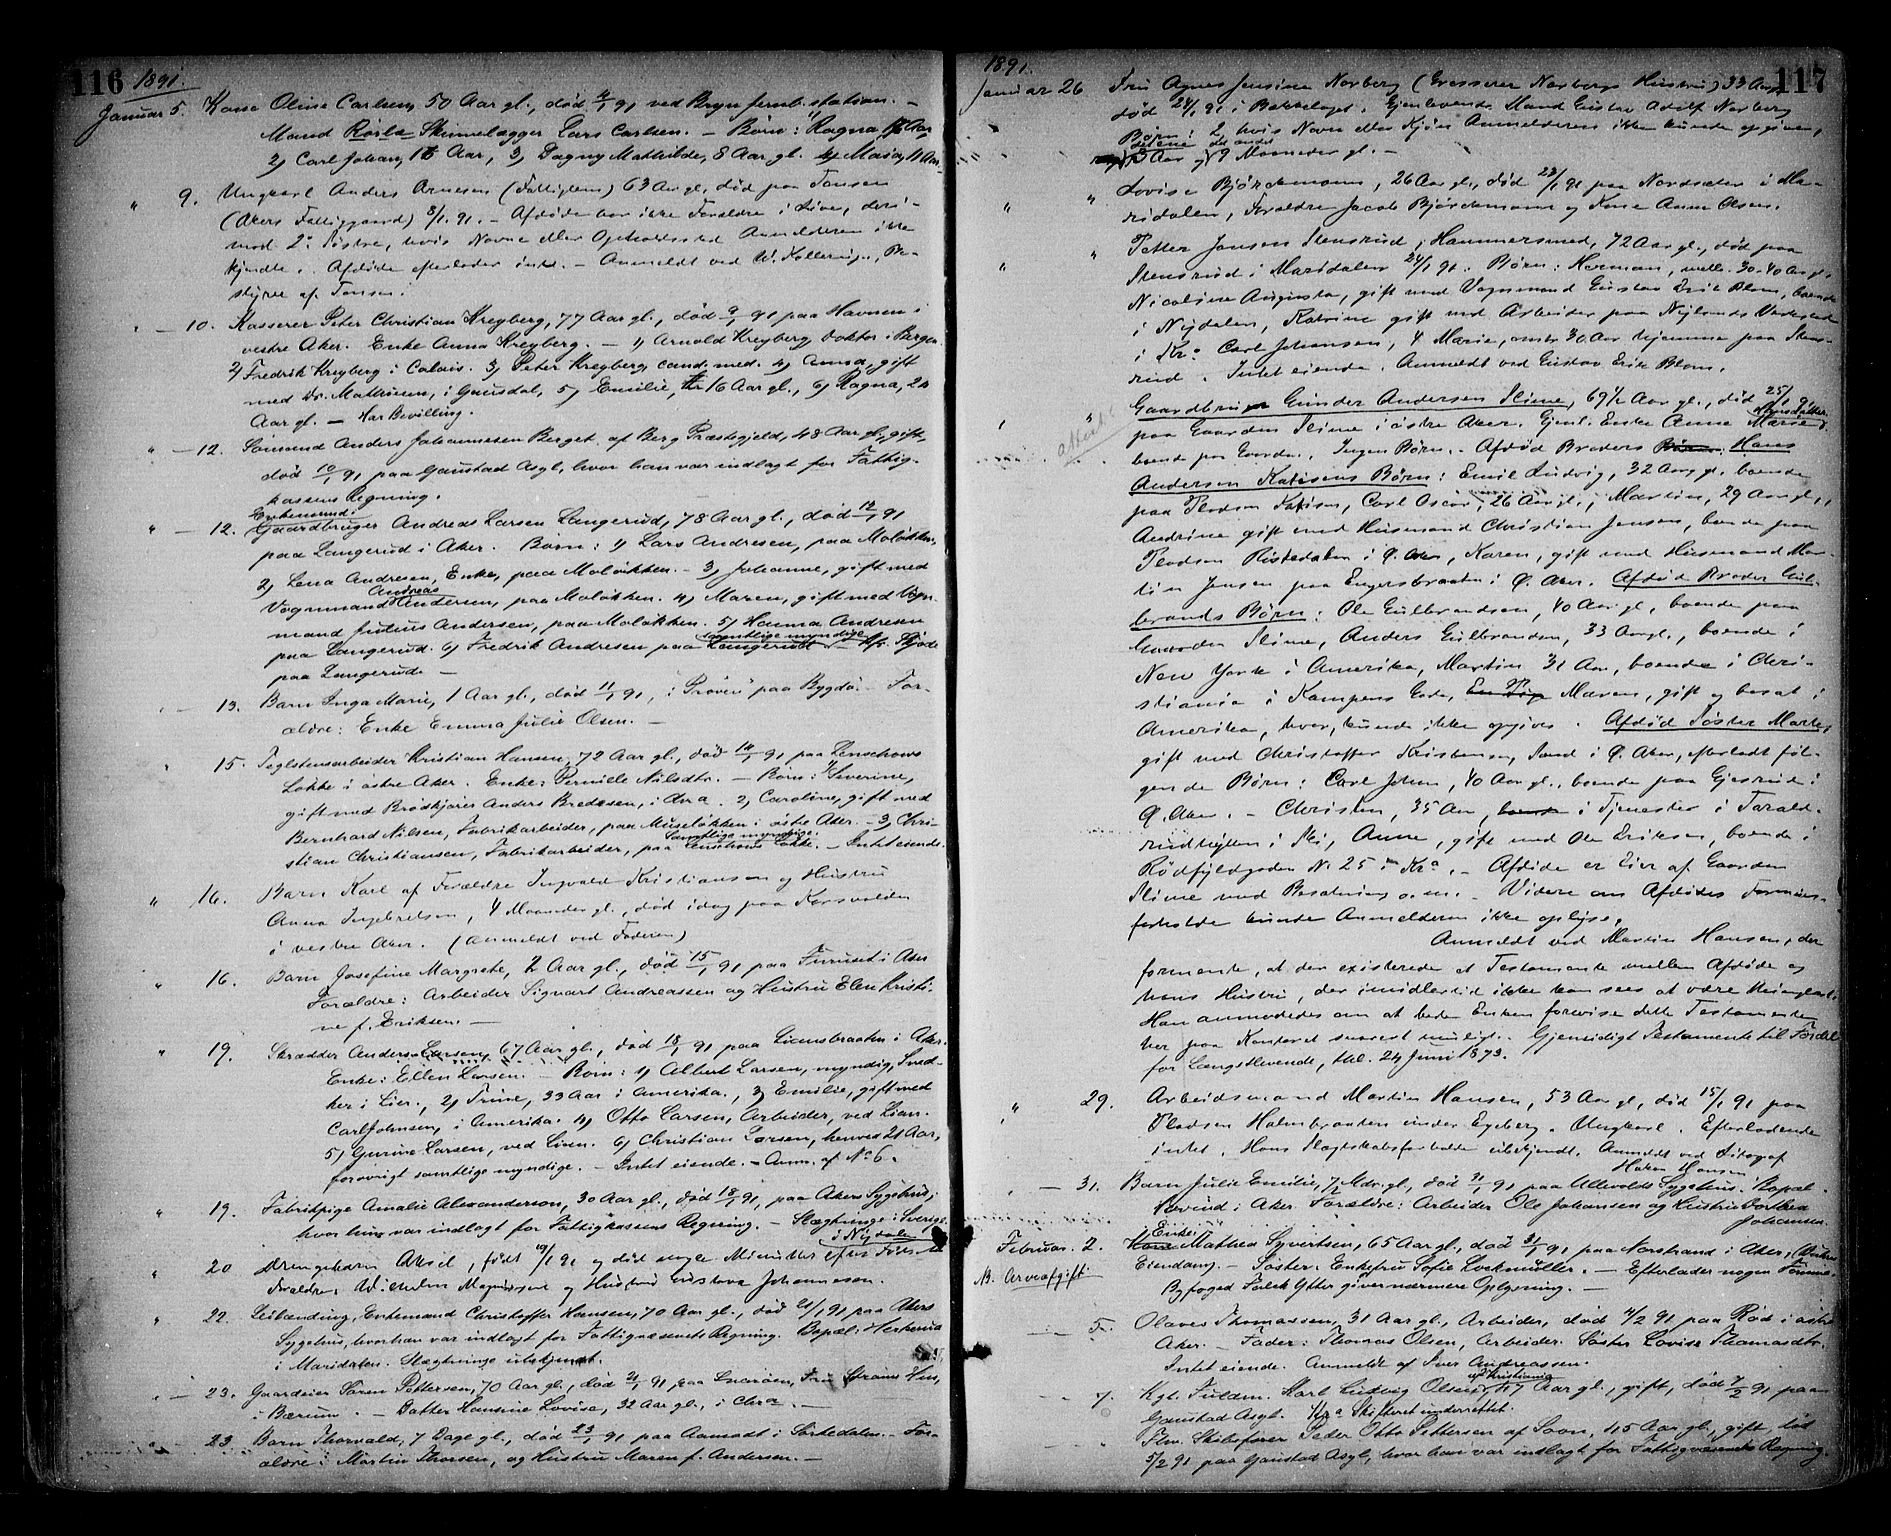 116 1891.
Januar 5. Kone Oline Carlsen, 50 Aar gl., død 4/1 91 ved Bryn Jernb.station. —
Mand Rørlæ Skinnelægger Lars Carlsen. — Børn: 1) Ragna 17 Aar
2) Carl Johan, 16 Aar, 3) Dagny Mathilde, 8 Aar gl. 4) Maia, 11 Aar.
" 9. Ungkarl Anders Arnesen (Fattiglem) 63 Aar gl., død paa Tonsen
(Akers Fattiggaard) 8/1 91. — Afdøde har ikke Forældre i Live, deri-
mod 2 Søstre, hvis Navne eller Opholdssted Anmelderen ikke
kjendte. Afdøde efterlader intet. — Anmeldt ved W. Kollerup, Be-
styrer af Tonsen.
" — 10. Kasserer Peter Christian Kreyberg, 77 Aar gl., død 9/1 91 paa Havnen i
vestre Aker. Enke Anna Kreyberg. — 1) Arnold Kreyberg, Doktor i Bergen
2) Fredrik Kreyberg i Calais. 3) Peter Kreyberg, cand. med. 4) Anna, gift
med Dr. Mathiesen, i Gausdal, 5) Emilie, 16 Aar gl., 6) Ragna, 24
Aar gl. — Har Bevilling.
" — 12. Sømand Anders Johannesen Berget, af Berg Præstegjeld, 48 Aar gl., gift,
død 10/1 91 paa Gaustad Asyl, hvor han var indlagt for Fattig-
kassens Regning.
Enkemand
" — 12. Gaardbruger Andreas Larsen Langerud, 78 Aar gl., død 12/1 91
paa Langerud i Aker. Børn: 1) Lars Andresen, paa Moløkken,
2) Lena Andresen, Enke, paa Moløkken. — 3) Johanne, gift med
Andreas
Vognmand Andersen, paa Moløkken. 4) Maren, gift med Vogn-
mand Julius Andersen, paa Moløkken. 5) Hanna Andresen
paa Langerud. 6) Fredrik Andresen paa Langerud samtlige myndige — Afs. Skjøde
paa Langerud —
" — 13. Barn Inga Marie, 1 Aar gl., død 11/1 91, i "Prøven" paa Bygdø. — For-
ældre: Enke Emma Julie Olsen. —
" 15. Teglstensarbeider Kristian Hansen, 72 Aar gl., død 14/1 91 paa Lenschows
Løkke i østre Aker. Enke: Pernille Nilsdtr. — Børn: 1) Severine,
gift med Brødkjører Anders Bredesen, i Chra. 2) Caroline, gift med
Bernhard Nilsen, Fabrikarbeider, paa Museløkken i østre Aker. — 3) Chri-
samtlige myndige.
stian Christiansen, Fabrikarbeider, paa Lenschows Løkke. — Intet eiende.
" 16. Barn Karl af Forældre Ingvald Kristiansen og Hustru
Anna Ingebretsen, 4 Maaneder gl., død idag paa Korsvolden
i vestre Aker. (Anmeldt ved Faderen)
" 16. Barn Josefine Margrete, 2 Aar gl., død 15/1 91 paa Furuset i Aker
Forældre: Arbeider Sigvart Andreassen og Hustru Elen Kristi-
ne f. Eriksen. —
" 19. Skrædder Anders Larsen, 67 Aar gl., død 18/1 91 paa Liansbraaten i Aker.
Enke: Ellen Larsen. — Børn: 1) Albert Larsen, myndig, Sned-
ker i Lier, 2) Trine, 33 Aar i Amerika, 3) Emilie, gift med
Carl Johnsen, i Amerika. 4) Otto Larsen, Arbeider, ved Lian.
5) Gurine Larsen, ved Lian. 6) Christian Larsen, henved 21 Aar,
forøvrigt samtlige myndige. — Intet eiende. — Anm. af No 6.
" 19. Fabrikpige Amalie Alexanderson, 30 Aar gl., død 18/1 91, paa Akers Sygehus,
hvor hun var indlagt for Fattigkassens Regning. — Slægtninge i Sverige
i Nydalen
" 20 Drengebarn Aksel, født 19/1 91 og død nogle Minutter efter Fødselen
Forældre, Wilhelm Magnussen og Hustru Gustava Johannesen.
" 22. Leilænding, Enkemand Christoffer Hansen, 70 Aar gl., død 21/1 91 paa Akers
Sygehus, hvor han var indlagt for Fattigvæsenets Regning. Bopæl: Herkerud
i Maridalen. Slægtninge ubekjendt.
" — 23. Gaardeier Søren Pettersen, 70 Aar gl., død 21/1 91 paa Snarøen,
i Bærum. — Datter Hansine Lovise, 32 Aar gl., i Chra. —
" — 23 Barn Thorvald, 7 Dage gl., død 23/1 91 paa Aamodt i Sørkedalen. — For-
ældre: Martin Thorsen, og Hustru Maren f. Andersen. —
1891. 117
Januar 26 Fru Agnes Jensine Norberg (Grosserer Norbergs Hustru) 33 Aar
død 24/1 91 i Bækkelaget. Gjenlevende Mand Gustav Adolf Norberg
Børn: 2, hvis Navn eller Kjøn Anmelderen ikke kunde opgive,
det ene det andet
3 Aar og 9 Maaneder gl. —
" " Lovise Bjørdemann, 26 Aar gl., død 23/1 91 paa Nordsæter i Ma-
ridalen, Forældre Jacob Bjørdemann og Kone Anne Olsen.
" " Petter Jonsen Stensrud, Hammersmed, 72 Aar gl., død paa
Stensrud i Maridalen 24/1 91. Børn: Herman, mell. 30-40 Aar gl.,
Nicoline Augusta, gift med Vognmand Gustav Erik Blom, boende
i Nydalen, Katrine gift med Arbeider paa Nylands Værksted
i Kra Carl Johansen, 4 Marie, over 30 Aar hjemme paa Stens-
rud. Intet eiende. Anmeldt ved Gustav Erik Blom.
" " Gaardbruger Gunder Andersen Slime, 69 1/2 Aar gl., død 25/1 91
Hansdatter
paa Gaarden Slime i østre Aker. Gjenl. Enke Anne Marie
attest
boende paa Gaarden. Ingen Børn. Afdød Broders Børn Hans
Andersen Katisens Børn: Emil Ludvig, 32 Aar gl. boende
paa Pladsen Katisen, Carl Oscar, 26 Aar gl., Martin, 29 Aar gl.,
Andrine gift med Husmand Christian Jensen, boende paa
Pladsen Ristedalen i Ø. Aker, Karen, gift med Husmand Mar-
tin Jensen paa Engersbraaten i Ø. Aker. Afdød Broder Gul-
brands Børn: Ole Gulbrandsen, 40 Aar gl., boende paa
Gaarden Slime, Anders Gulbrandsen, 33 Aar gl., boende i
New York i Amerika, Martin 31 Aar, boende i Chri-
stiania i Kampens Gade, Maren, gift og bosat i
Amerika, hvor, kunde ikke opgives. Afdød Søster Marte,
gift med Christoffer Kristensen, Sand i Ø. Aker, efterladt føl-
gende Børn: Carl Johan, 40 Aar gl., boende paa Gjesrud i
Ø. Aker. — Christen, 35 Aar, boende i Tjeneste i Tarald-
rudtejlen i Ski, Anne, gift med Ole Eriksen, boende i
Rødfyldgaden No 25 i Kra. — Afdøde er Eier af Gaarden
Slime med Besætning o. m. — Videre om Afdødes Formues-
forholde kunde Anmelderen ikke oplyse.
Anmeldt ved Martin Hansen, der
formente, at der existerede et Testamente mellem Afdøde og
hans Hustru, der imidlertid ikke kan sees at være thinglæst.
Han anmodedes om at bede Enken forevise dette Testamente
her paa Kontoret snarest muligt. Gjensidigt Testamente til Fordel
for Længstlevende, thl. 24 Juni 1873.
" 29. Arbeidsmand Martin Hansen, 53 Aar gl., død 15/1 91 paa
Pladsen Halmbraaten under Egeberg. Ungkarl. Efterladende
intet. Hans Slægtskabsforholde ubekjendt. Anmeldt ved Litograf
Haken Hansen
" — 31. Barn Julie Emilie, 7 Mdr. gl., død 31/1 91 paa Ullevolds Sygehus. Bopæl
i Aker. Forældre: Arbeider Ole Johansen og Hustru Dorthea
Johansen.
Enke
Februar. 2. Kone Mathea Syvertsen, 65 Aar gl., død 31/1 91 paa Norstrand i Aker,
N. Arveafgift Eiendom. — Søster: Enkefru Sofie Lockmüller. — Efterlader nogen Formue.
Byfoged Falck Ytter giver nærmere Oplysning. —
" — 5. Olaves Thomassen, 31 Aar gl., Arbeider, død 4/2 91 paa Rød i østre
Aker. — Fader: Thomas Olsen, Arbeider. Søster Lovise Thomasdtr.
Intet eiende. Anmeldt af Iver Andreassen.
af Kristiania
" 7. Kgl. Fuldm. Karl Ludvig Olsen, 47 Aar gl., gift, død 7/2 91 paa
Gaustad Asyl. Kra Skifteret underrettet.
Flw. Skibsfører Peter Otto Pettersen af Soon, 45 Aar gl., gift død
5/2 91 paa Gaustad Asyl, hvor han var indlagt for Fattigvæsenets Regning.